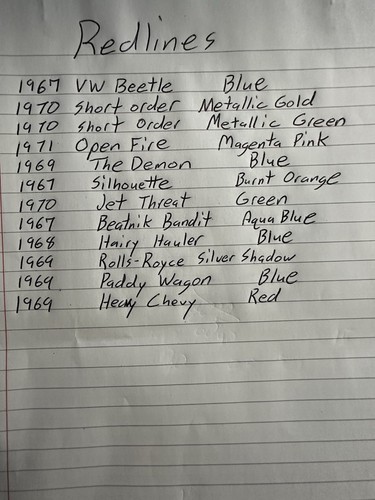 Redlines
1967 VW Beetle Blue
1970 Short order Metallic Gold
1970 Short Order Metallic Green
1971 Open Fire Magenta Pink
1969 The Demon Blue
1967 Silhouette Burnt Orange
1970 Jet Threat Green
1967 Beatnik Bandit Aqua Blue
1968 Hairy Hauler Blue
1969 Rolls-Royce Silver Shadow
1969 Paddy Wagon Blue
1969 Heavy Chevy Red